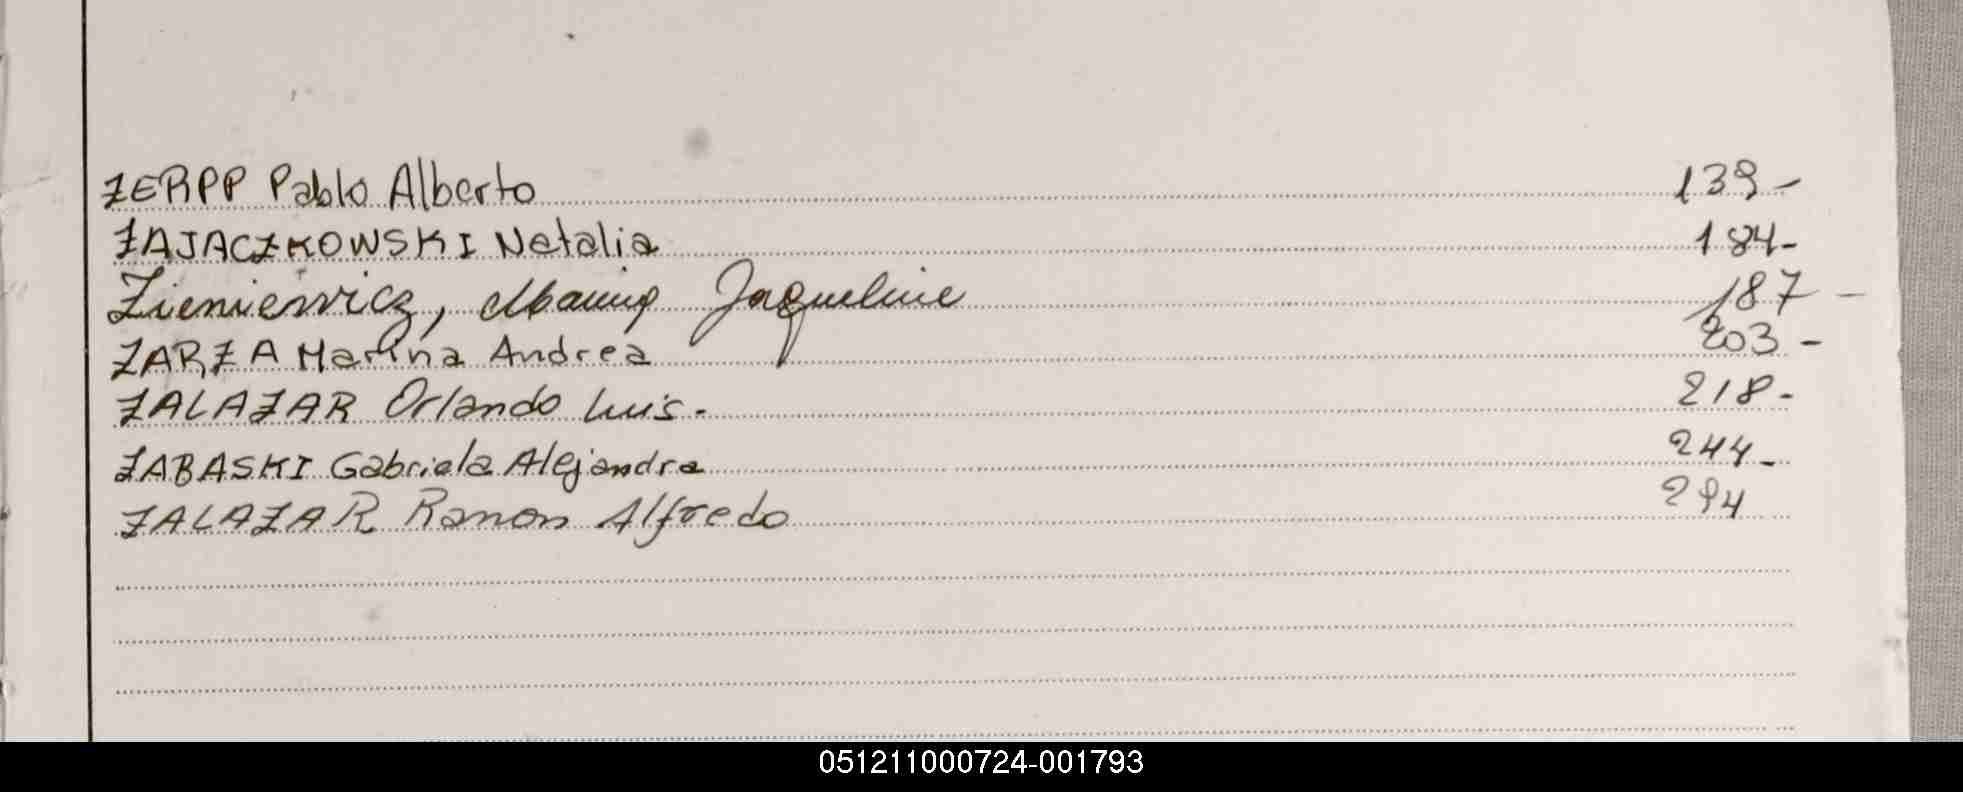 ZERPP Pablo Alberto 139-
ZAJACZKOWSKI Natalia 184-
Zieniewicz, Jaqueline 187-
ZARZA Marina Andrea 203-
ZALAZAR Orlando Luis. 218-
ZABASKI Gabriela Alejandra 244-
ZALAZAR Ramon Alfredo 294
051211000724-001793